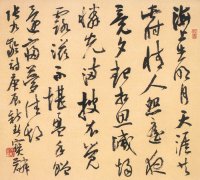 海上生明月天涯共
此时情人怨遥夜
竟夕起相思灭烛
怜光满披衣觉
露滋不堪盈手赠
还寝梦佳期
张九龄诗庚辰